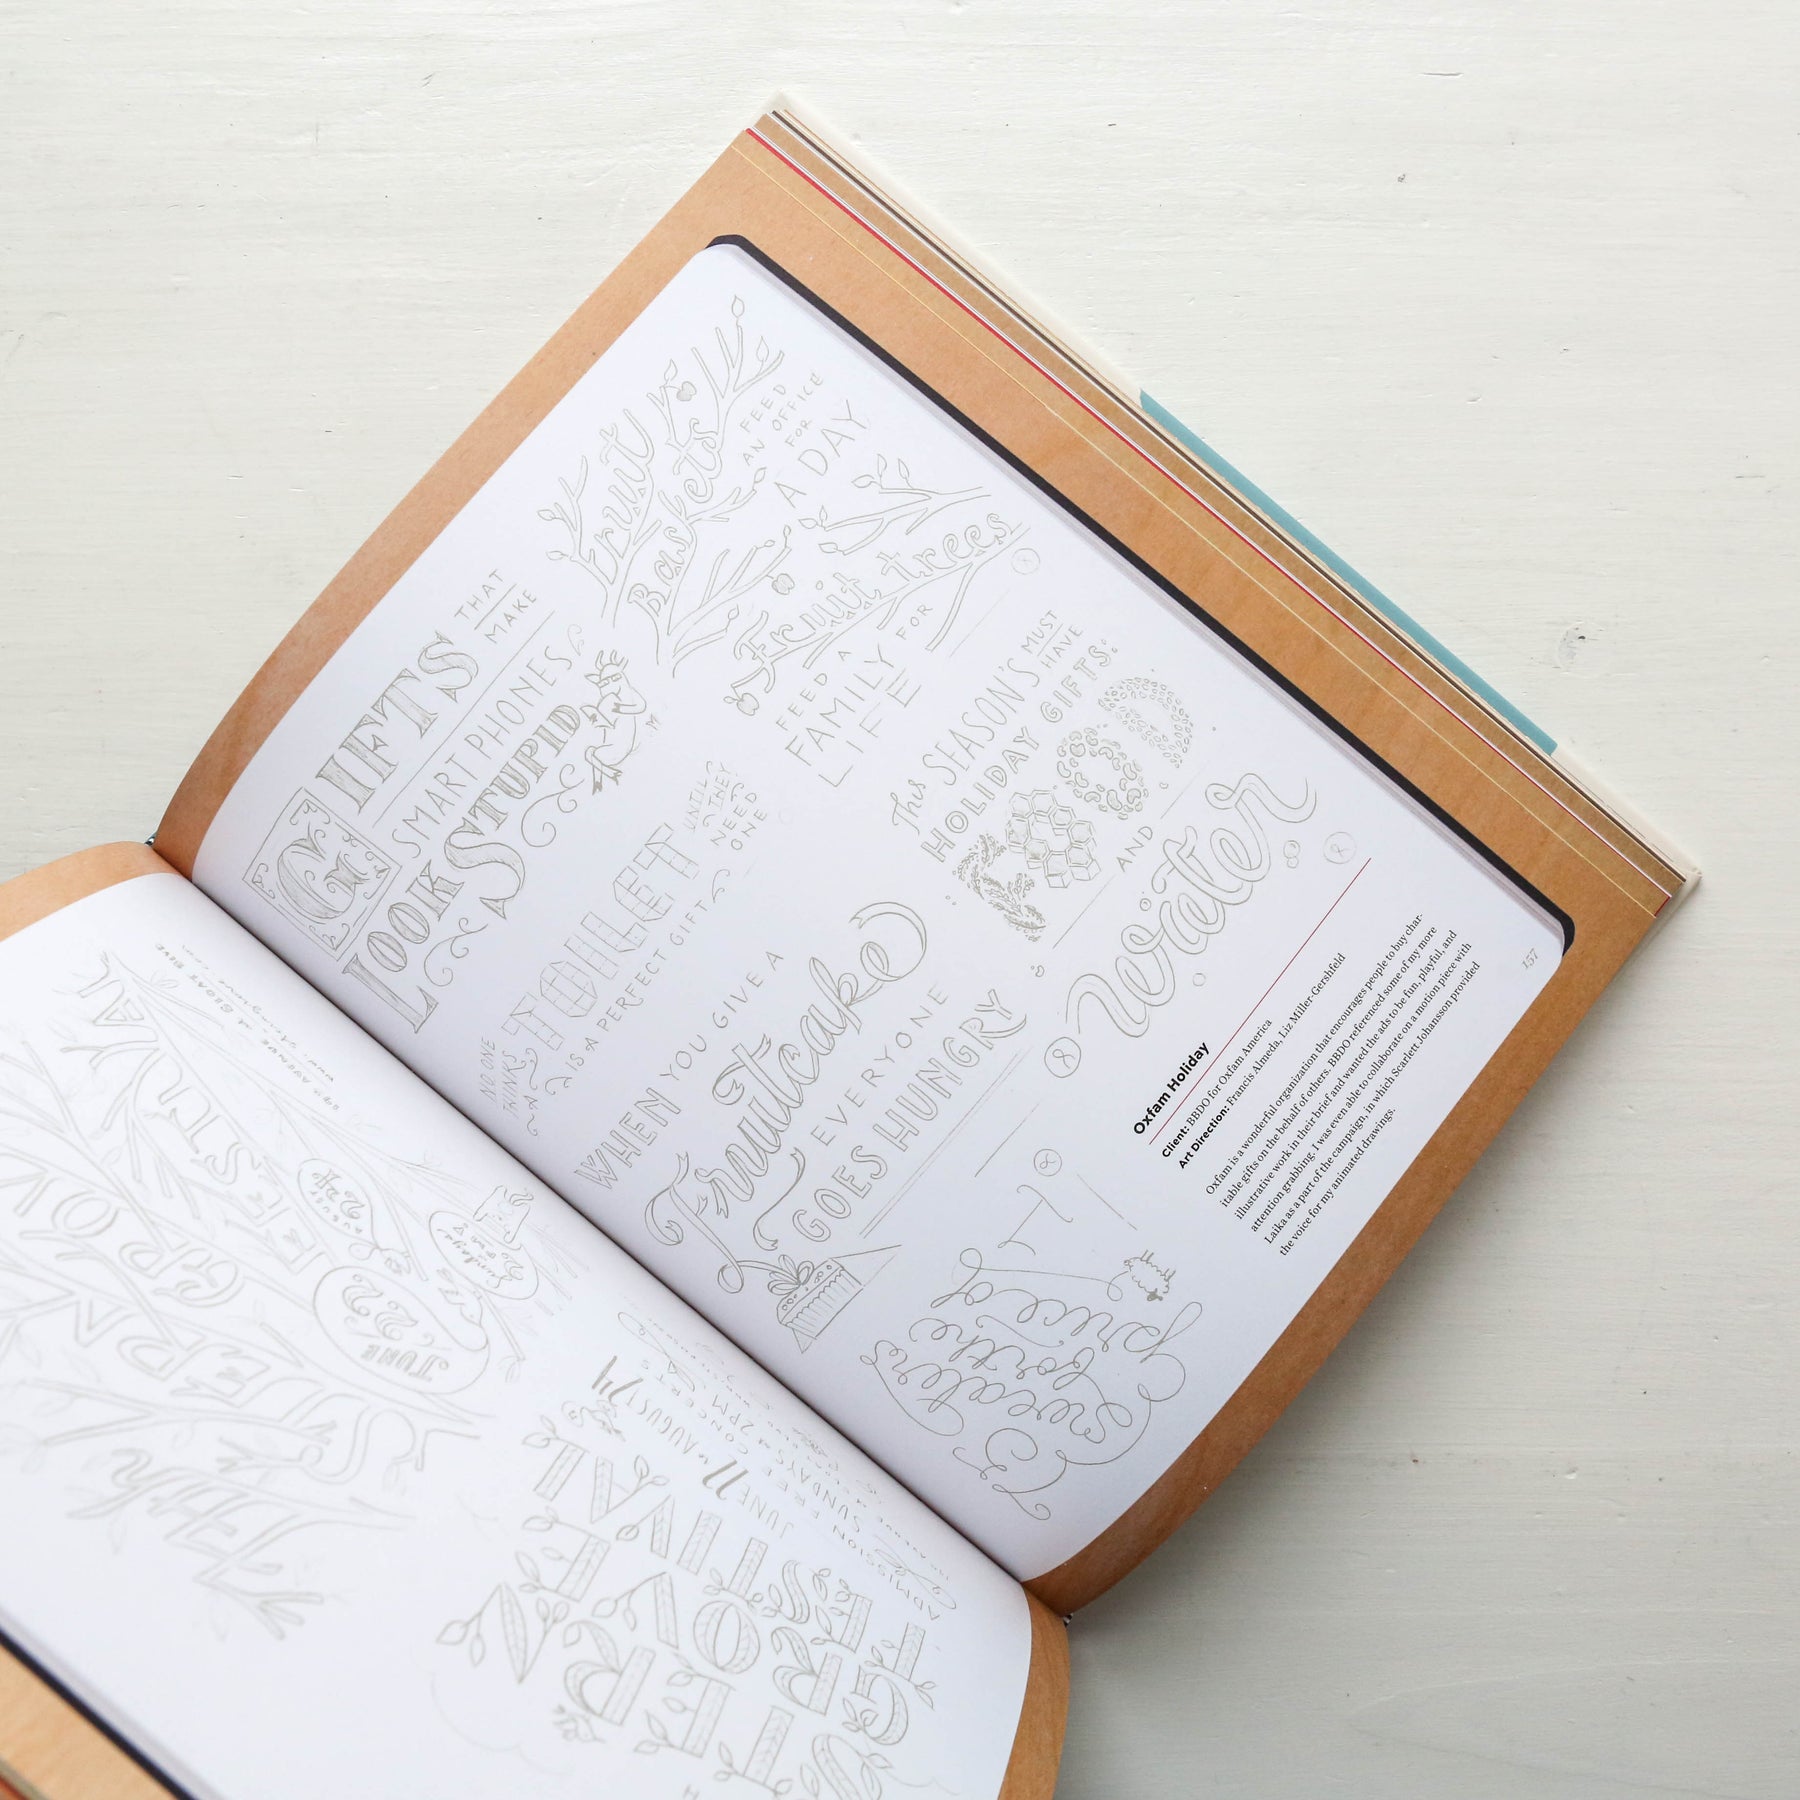 GIFTS
THAT
MAKE
SMART PHONES
LOOK STUPID
Fruit
Baskets
FEED
AN OFFICE
FOR
A DAY
Fruit trees
FEED A
FAMILY FOR
LIFE
NO ONE
THINKS
A
TOILET
IS A PERFECT GIFT
UNTIL
THEY
NEED
ONE
This SEASON'S MUST
HAVE
HOLIDAY GIFTS:
FOOD
AND
Water
WHEN YOU GIVE A
Fruitcake
EVERYONE
GOES HUNGRY
Sweaters
for the
price of
1
Oxfam Holiday
Client: BBDO for Oxfam America
Art Direction: Francis Almeda, Liz Miller-Gershfeld
Oxfam is a wonderful organization that encourages people to buy char-
itable gifts on the behalf of others. BBDO referenced some of my more
illustrative work in their brief and wanted the ads to be fun, playful, and
attention grabbing. I was even able to collaborate on a motion piece with
Laika as a part of the campaign, in which Scarlett Johansson provided
the voice for my animated drawings.
157
STERN
GROVE
FESTIVAL
JUNE
22
AUGUST
24
Sundays
STERN
GROVE
FESTIVAL
JUNE 22 to AUGUST 24
ADMISSION FREE CONCERTS
SUNDAYS at 2PM